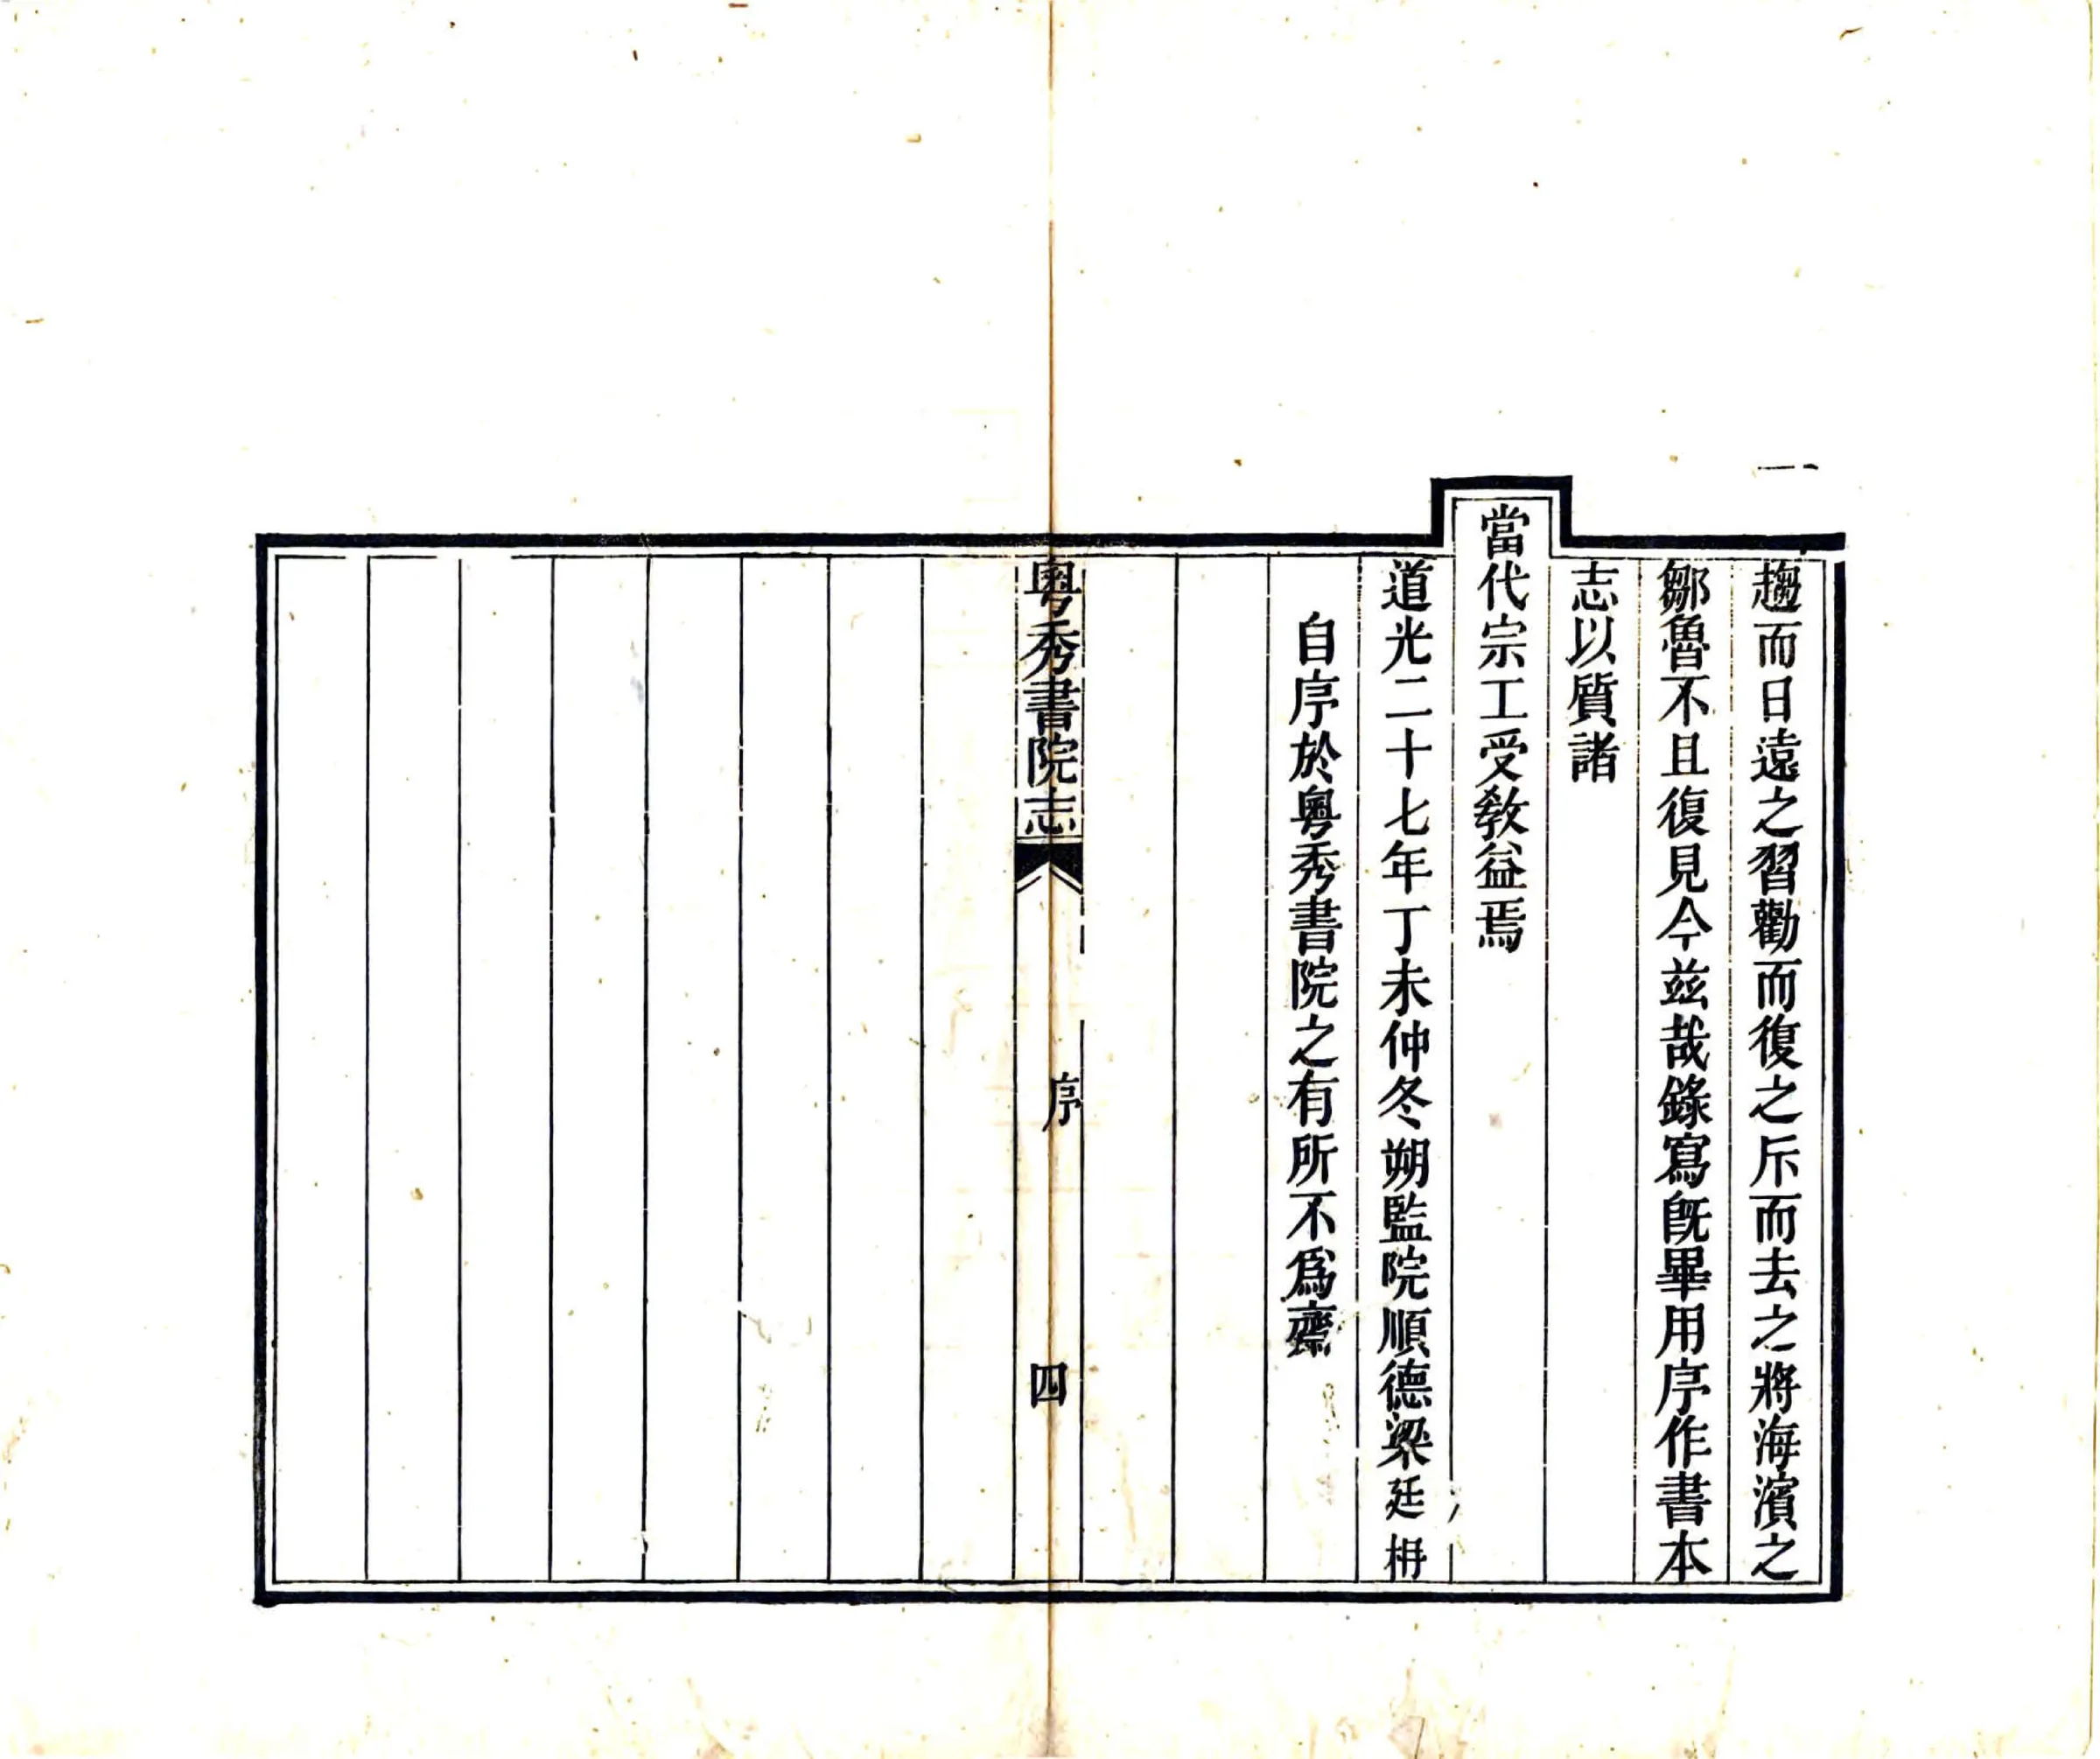 趨而日遠之習勸而復之斥而去之將海濱之
鄒魯不且復見今茲哉錄寫旣畢用序作書本
志以質諸
當代宗工受敎益焉
道光二十七年丁未仲冬朔監院順德梁廷枏
自序於粵秀書院之有所不爲齋
粵秀書院志
序
四